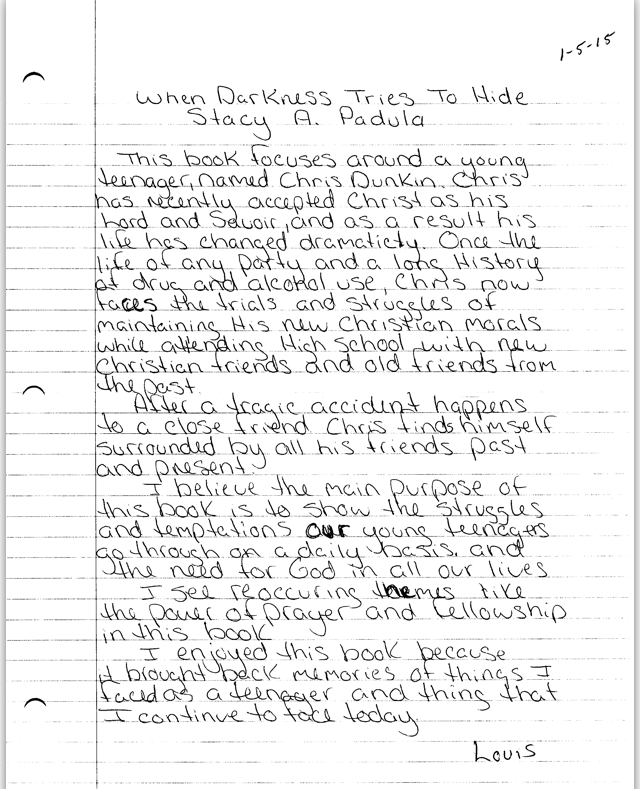 1-5-15
When Darkness Tries To Hide
Stacy A. Padula
This book focuses around a young
teenager, named Chris Dunkin. Chris
has recently accepted Christ as his
Lord and Savoir, and as a result his
life has changed dramaticty. Once the
life of any party and a long History
of drug and alcohol use, Chris now
faces the trials and struggles of
maintaining His new Christian morals
while attending High School with new
Christian friends and old friends from
the past.
After a tragic accident happens
to a close friend Chris finds himself
surrounded by all his friends past
and present.
I believe the main purpose of
this book is to show the struggles
and temptations our young teenagers
go through on a daily basis, and
the need for God in all our lives
I see reoccuring themes like
the power of prayer and fellowship
in this book
I enjoyed this book because
it brought back memories of things I
faced as a teenager and thing that
I continue to face today.
Louis